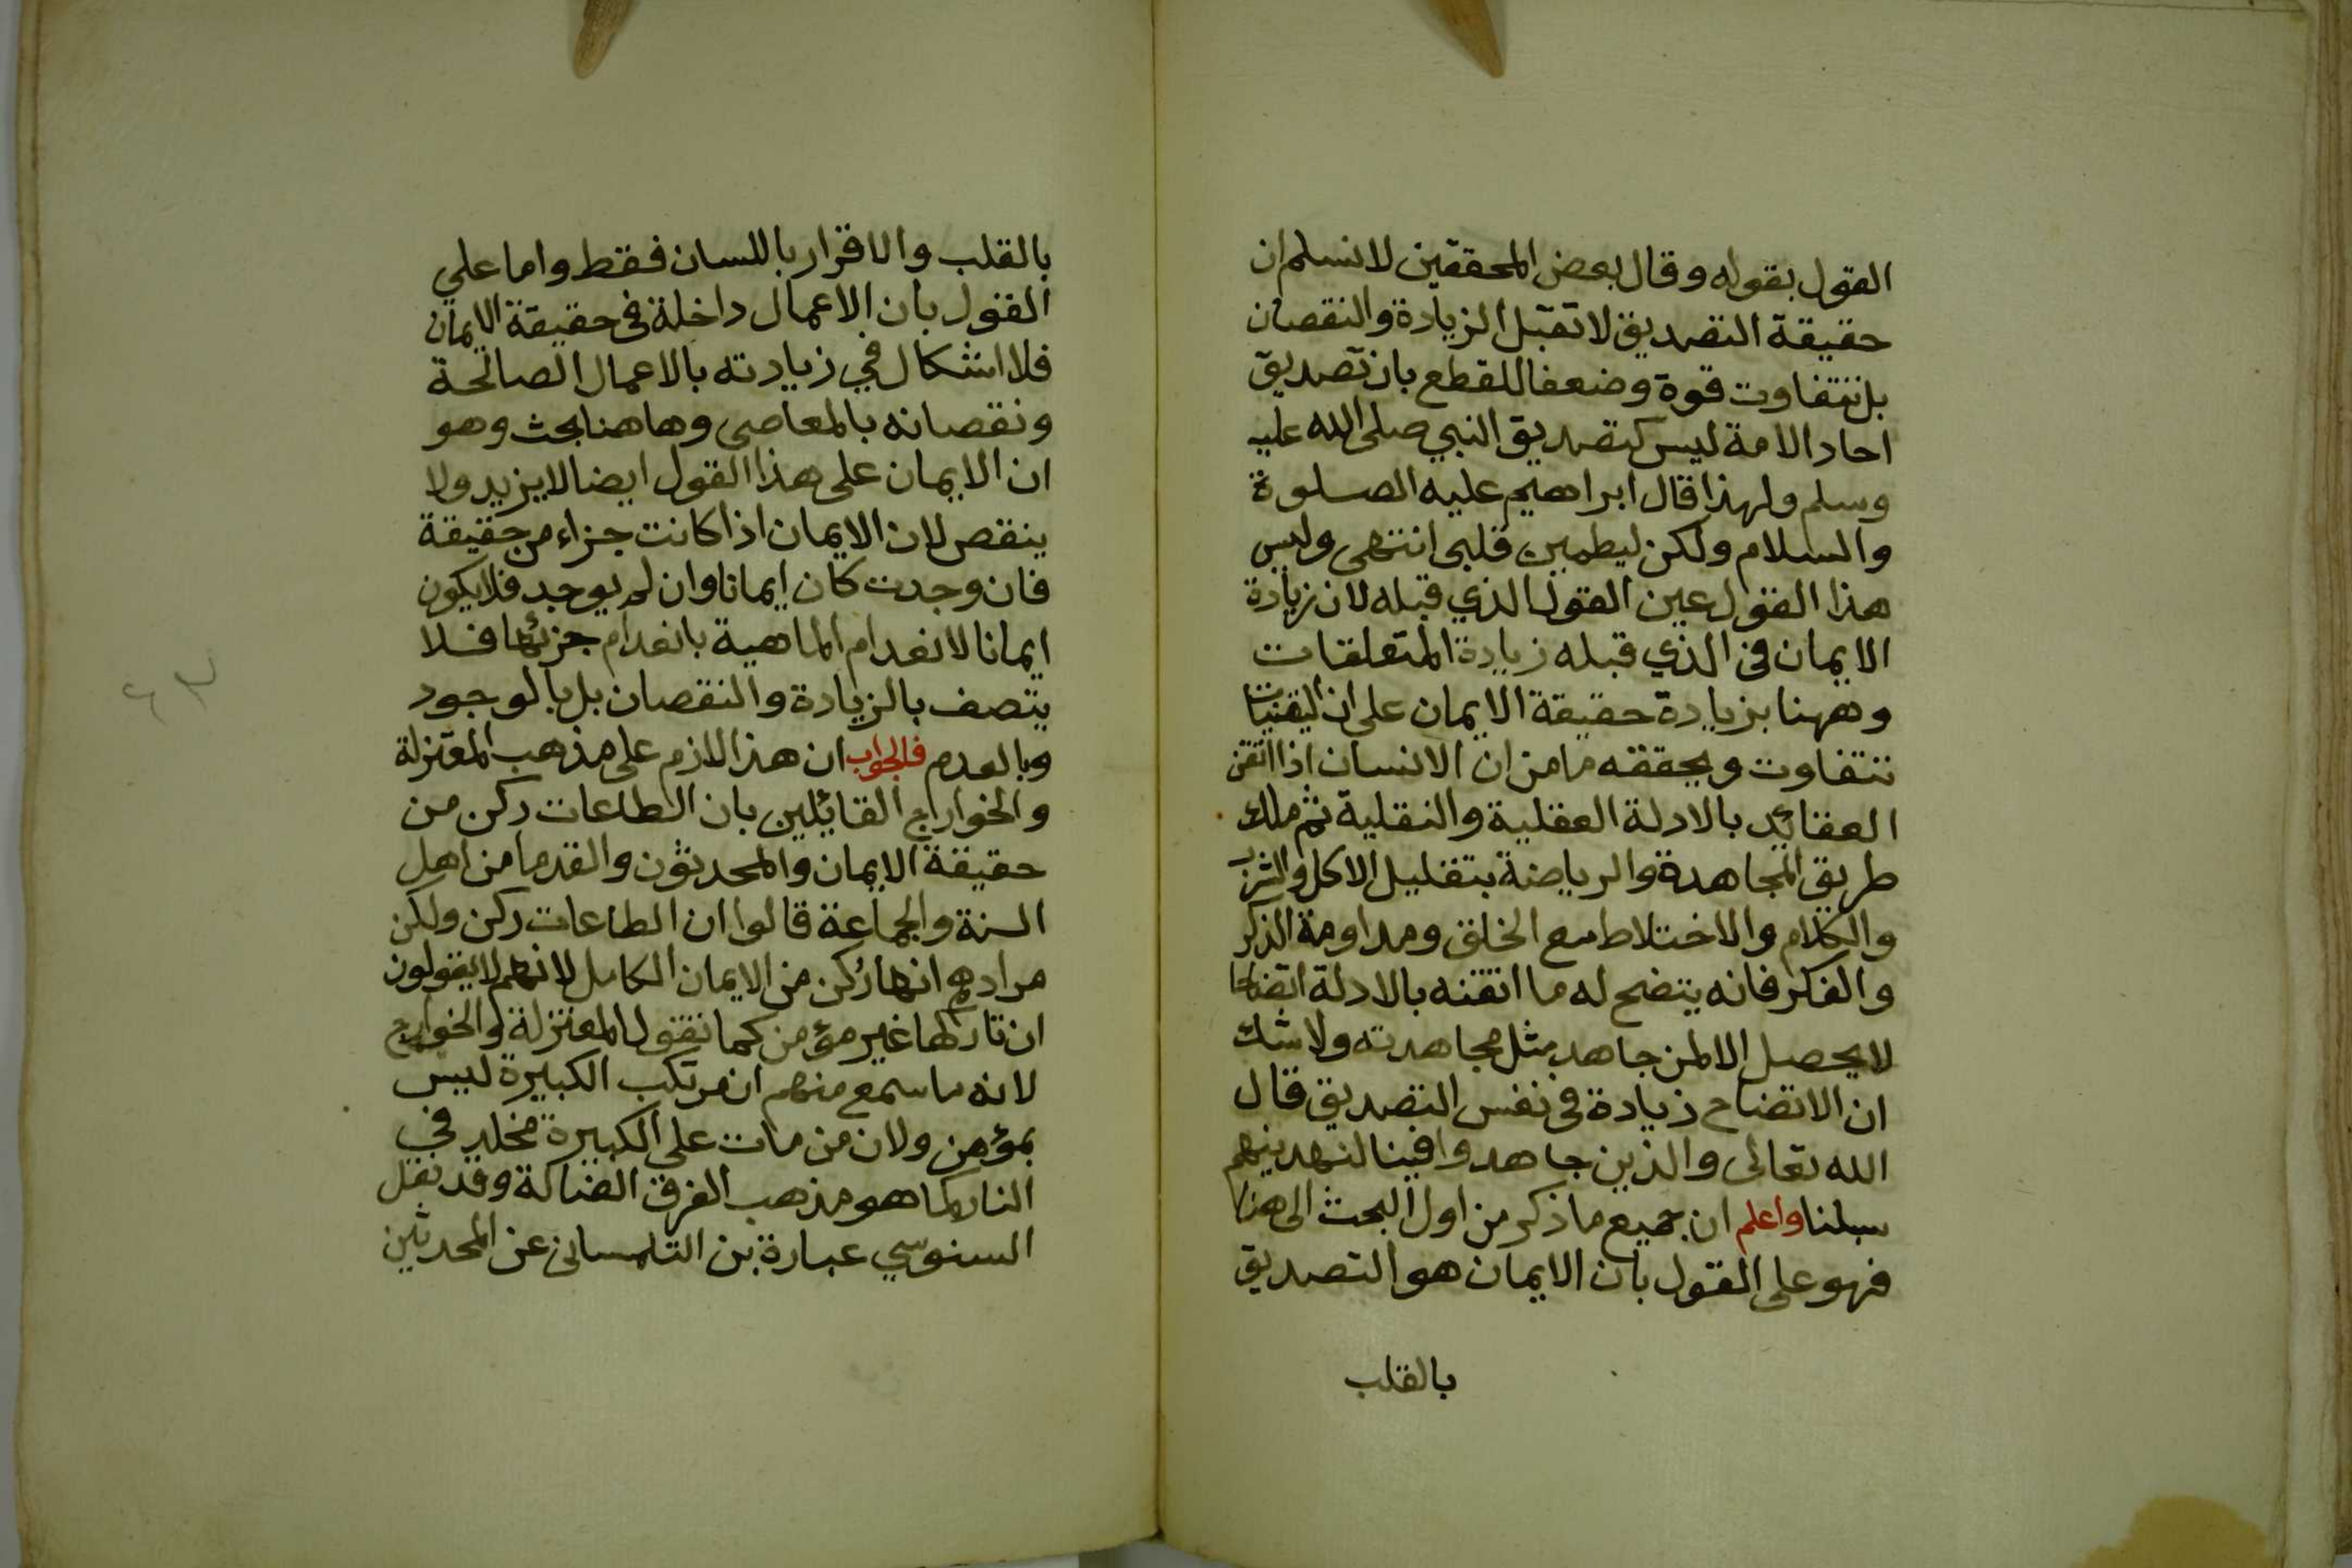 القول بقوله وقال بعض المحققين لا نسلم ان
حقيقة التصديق لا تقبل الزيادة والنقصان
بل تتفاوت قوة وضعفا للقطع بان تصديق
احاد الامة ليس كتصديق النبي صلى الله عليه
وسلم ولهذا قال ابراهيم عليه الصلوة
والسلام ولكن ليطمين قلبي انتهى وليس
هذا القول عين القول الذي قبله لان زيادة
الايمان في الذي قبله زيادة المتعلقات
وههنا بزيادة حقيقة الايمان على ان اليقنيات
تتفاوت ويحققه ما من ان الانسان اذا اتقن
العقائد بالادلة العقلية والنقلية ثم ملك
طريق المجاهدة والرياضة بتقليل الاكل والشرب
والكلام والاختلاط مع الخلق ومداومة الذكر
والفكر فانه يتضح له ما اتقنه بالادلة اتضاحا
لا يحصل الا لمن جاهد مثل مجاهدته ولا شك
ان الاتضاح زيادة في نفس التصديق قال
الله تعالى والذين جاهدوا فينا لنهدينهم
سبلنا واعلم ان جميع ما ذكر من اول البحث الى هنا
فهو على القول بان الايمان هو التصديق
بالقلب
بالقلب والاقرار باللسان فقط واما علي
القول بان الاعمال داخلة في حقيقة الايمان
فلا اشكال في زيادته بالاعمال الصالحة
ونقصانه بالمعاصي وهاهنا بحث وهو
ان الايمان على هذا القول ايضا لا يزيد ولا
ينقص لان الايمان اذا كانت جزاء من حقيقة
فان وجدت كان ايمانا وان لم يوجد فلا يكون
ايمانا لانعدام الماهية بانعدام جزئها فلا
يتصف بالزيادة والنقصان بل بالوجود
وبالعدم فالجواب ان هذا اللازم على مذهب المعتزلة
والخوارج القائلين بان الطاعات ركن من
حقيقة الايمان والمحدثون والقدما من اهل
السنة والجماعة قالوا ان الطاعات ركن ولكن
مرادهم انها ركن من الايمان الكامل لانهم لا يقولون
ان تاركها غير مؤمن كما تقول المعتزلة والخوارج
لانه ما سمع منهم ان مرتكب الكبيرة ليس
بمؤمن ولان من مات على الكبيرة مخلد في
النار كما هو مذهب الفرق الضالة وقد نقل
السنوسي عبارة بن التلمساني عن المحدثين